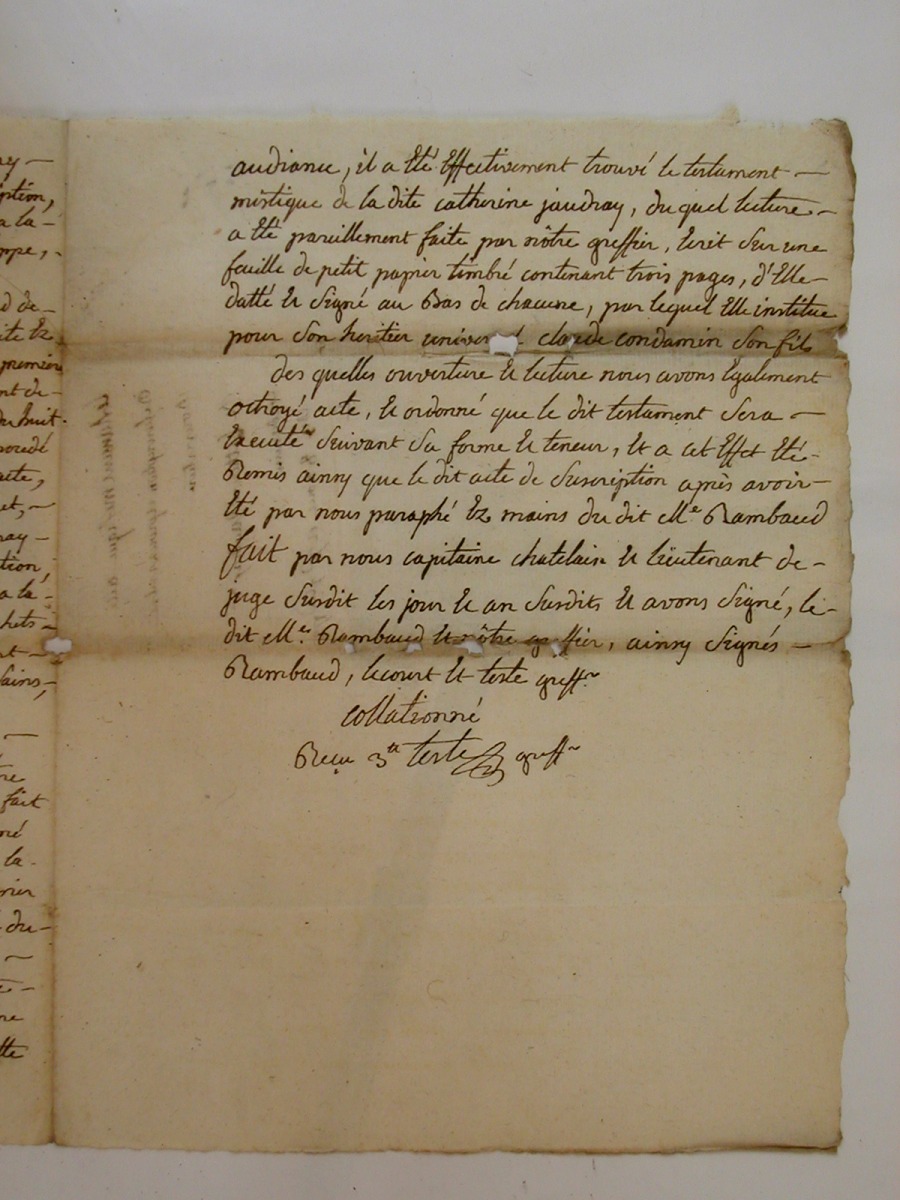 ay —
ption,
a la —
ppe, -
d de -
ite Ez
premier
nt de -
du huit.
ocedé
acte,
et, —
ray —
tion,
a la -
hets -
nt —
sains,
—
re
fait
né
la -
rier
du -
—
re
tte
audiance, il a Eté Effectivement trouvé le testament —
mistique de la dite catherine jaudray, du quel lecture —
a Eté pareillement faite par nôtre greffier, Ecrit Sur une
feuille de petit papier timbré contenant trois pages, d'Elle -
datté Et Signé au Bas de chacune, par lequel Elle institue
pour Son heritier univer l claude condamin Son fils
des quelles ouverture Et lecture nous avons Egalement
octroyé acte, Et ordonné que le dit testament Sera —
Executé Suivant Sa forme Et teneur, Et a cet Effet Eté -
Remis ainsy que le dit acte de Suscription après avoir —
Eté par nous paraphé Ez mains du dit Me Rambaud
fait par nous capitaine chatelain Et lieutenant de -
juge Susdit les jour Et an Susdits Et avons Signé, le -
dit Me Rambaud Et nôtre greffier, ainsy Signés —
Rambaud, lecourt Et teste greffr
Collationné
Reçu 3tt teste greffr